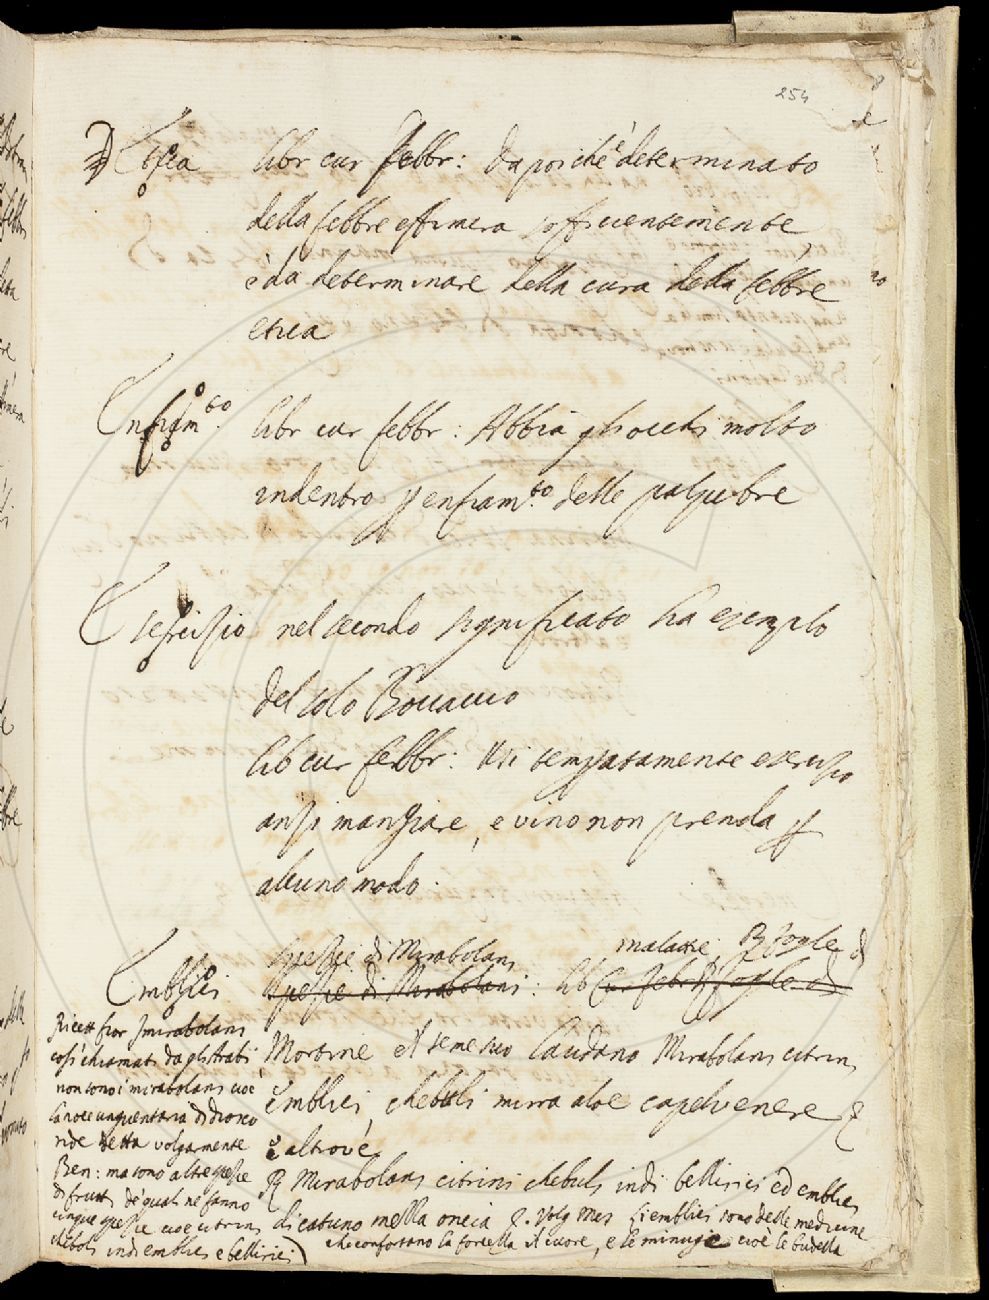 254
Etica libr cur febbr: Dapoiché è determinato
della febbre effimera sofficientemente,
è da determinare della cura della febbre
etica
Enfiam.to libr cur febbr: Abbia gli occhi molto
indentro p enfiam.to delle palpebre
Esercizio nel secondo significato ha esemplo
del solo Boccaccio
lib cur febbr: Usi temperatamente esercizio
anzi mangiare, e vino non prenda p
alcuno modo.
Emblici spezie di Mirabolani malattie. ℞ foglie di
spezie di Mirabolani: lib cur febr ℞ foglie di
Mortine e il seme suo laudano Mirabolani citrini
emblici chebuli mirra aloe capelvenere &
e altrove
℞ Mirabolani citrini chebuli indi bellirici ed emblici
di catuno mezza oncia &. Volg Mes Gi emblici sono delle medicine
che confortano la forcella il cuore, e le minugie cioè le budella
Ricett fior I mirabolani
così chiamati dagli Arabi
non sono i mirabolani cioè
la noce unguentaria di Diosco
ride detta volgarmente
Ben: ma sono altre spezie
di frutti de quali ne fanno
cinque spezie, cioè citrini
cheboli indi emblici e bellirici)